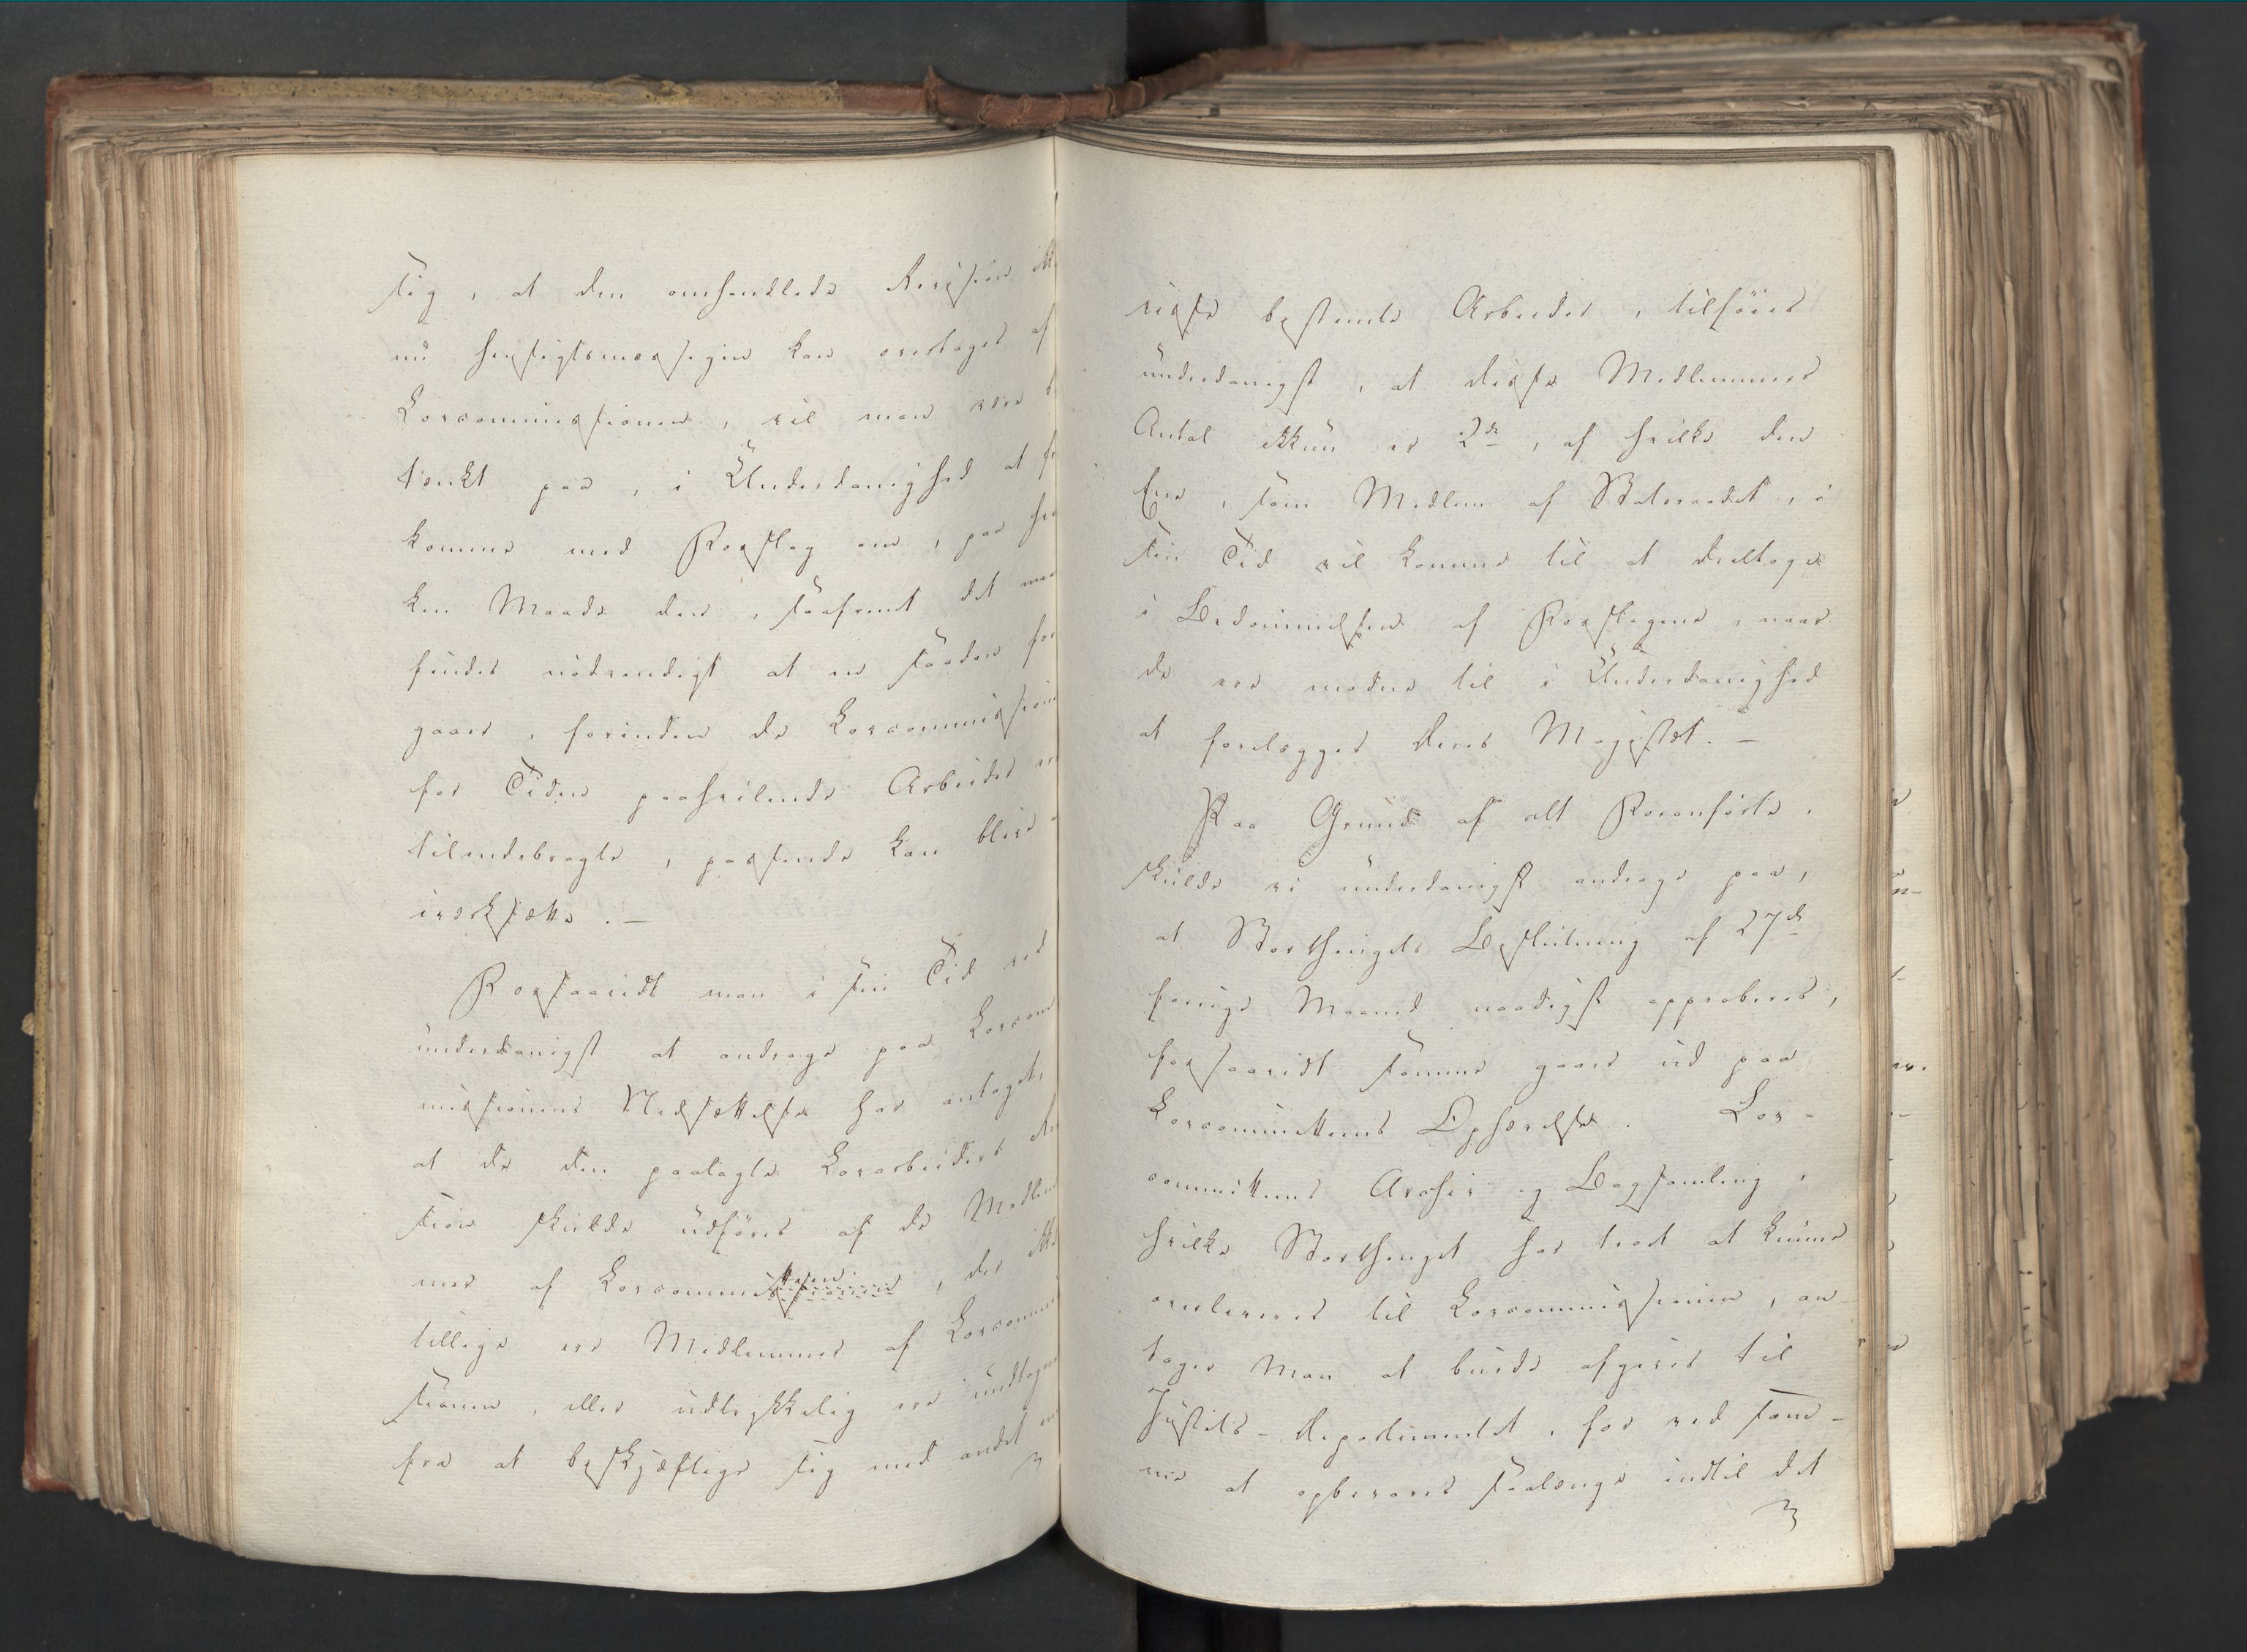 sig, at den omhandlede Revision ikke
nu hensigtsmæssigen kan overtages af
Lovcommissionen, vil man være b
tænkt paa, i Underdanighed at fr
komme med Forslag om, paa hvil
ken Maade den, saafremt det maa
findes nødvendigt at en saadan for
gaaer, forinden de Lovcommissionen
for Tiden paahvilende Arbeider ere
tilendebragte, passende kan blive at
iværksætte. —
Forsaavidt man i sin Tid ved
underdanigst at andrage paa Lovcom
missionens Nedsættelse har antaget,
at de den paalagte Lovarbeiders Revi
sion skulde udføres af de Medlem
mer af Lovcommissionen tteen, der ikke
tillige ere Medlemmer af Lovcommis
sionen, eller udtrykkelig ere undtagne
fra at beskjæftige sig med andet end
visse bestemte Arbeider, tilføies
underdanigst, at disse Medlemmers
Antal ikkun er 2de, af hvilke den
Ene, som Medlem af Statsraadet, i
sin Tid vil komme til at deeltage
i Bedømmelsen af Forslagene, naar
de ere modne til i Underdanighed
at forelægges Deres Majestæt. —
Paa Grund af alt Foranførte,
skulde vi underdanigst andrage paa,
at Storthingets Beslutning af 27de
forrige Maaned naadigst approberes,
forsaavidt samme gaaer ud paa
Lovcommitteens Ophævelse. Lov-
committeens Archiv og Bogsamling,
hvilke Storthinget har troet at kunne
overleveres til Lovcommissionen, an-
tager man at burde afgives til
Justits-Departementet, for ved sam-
me at opbevares saalænge indtil det